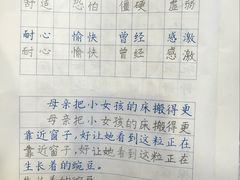 舒适 恐怕 僵硬 虚弱
耐心 愉快 曾经 感激
耐心 愉快 曾经 感激
母亲把小女孩的床搬得更
母亲把小女孩的床搬得更
靠近窗子,好让她看到这粒正在
靠近窗子,好让她看到这粒正在
生长着的豌豆。
生长着的豌豆。